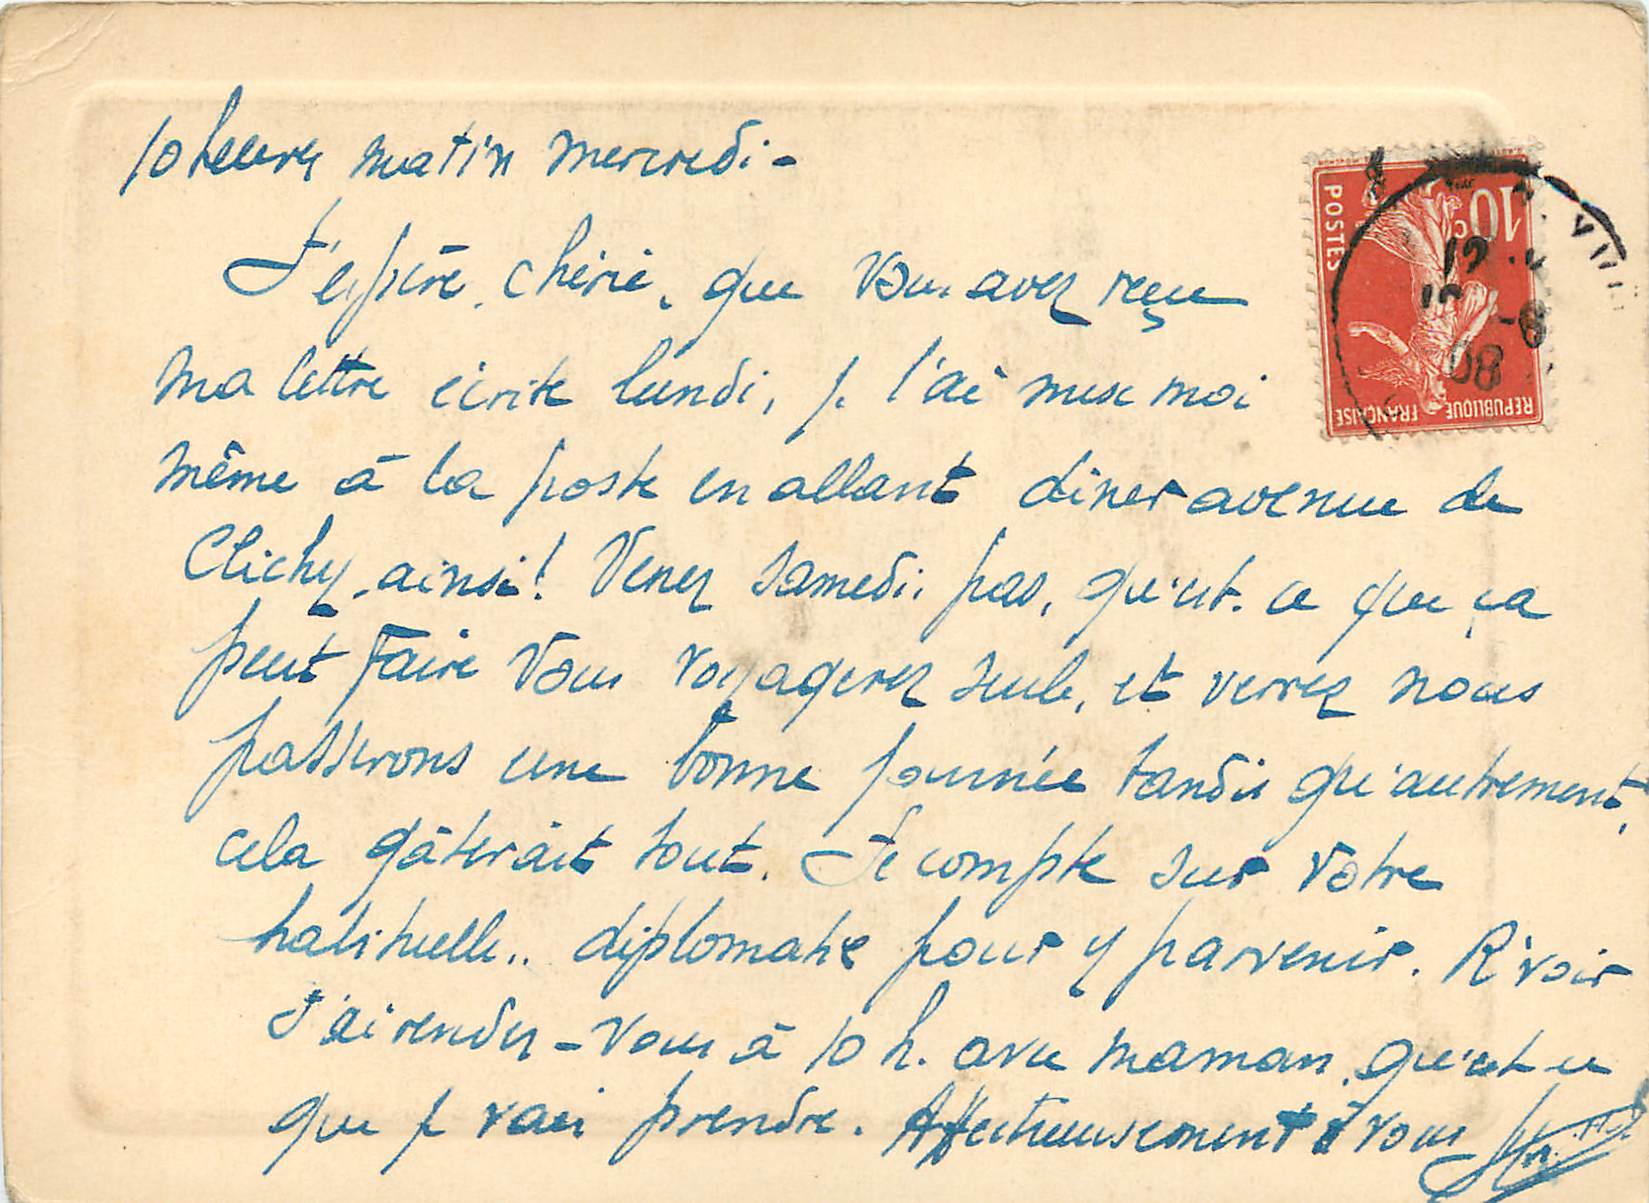 10 heures matin mercredi -
J'espère, chérie, que vous avez reçue
ma lettre écrite lundi, je l'ai mise moi
même à la poste en allant diner avenue de
Clichy, ainsi! Venez samedi pas, qu'est-ce que ça
peut faire vous voyagerez seule, et verrez nous
passerons une bonne journée tandis qu'autrement,
cela gâterait tout. Je compte sur votre
habituelle.. diplomatie pour y parvenir. R'voir
J'ai rendez-vous à 10 h. avec maman, qu'est-ce
que je vais prendre. Affectueusement à vous
10c
POSTES
REPUBLIQUE FRANÇAISE
08